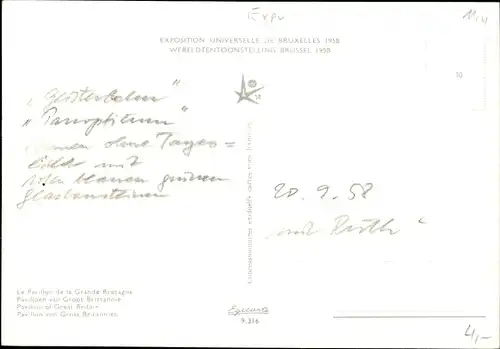 Expo
EXPOSITION UNIVERSELLE DE BRUXELLES 1958
WERELDTENTOONSTELLING BRUSSEL 1958
10
"Geisterbahn"
"Panoptikum"
ohne Tages=
mit
roten blauen grünen
Glasbausteinen
20.9.58
"mit Ruth"
Le Pavillon de la Grande Bretagne
Paviljoen van Groot Brittannië
Pavilion of Great Britain
Pavillon von Gross Britannien
Egicarte
9.316
4,-